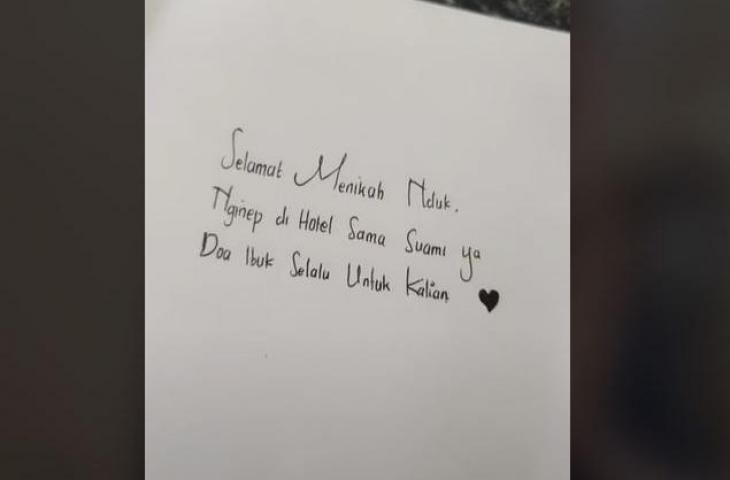 Selamat Menikah Nduk.
Nginep di Hotel Sama Suami ya
Doa Ibuk Selalu Untuk Kalian ♥